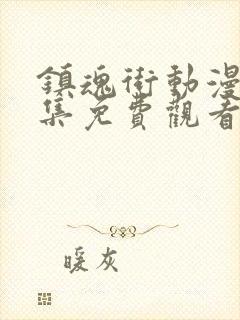 鎮魂街動漫
集免費觀看
暖灰